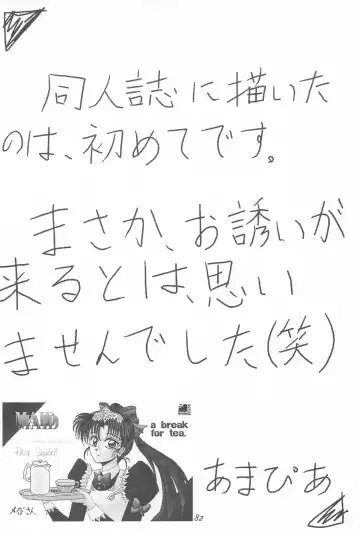 同人誌に描いた
のは、初めてです。
まさか、お誘いが
来るとは、思い
ませんでした(笑)
MAID
a break
for tea.
メイドさん
あまぴあ
82